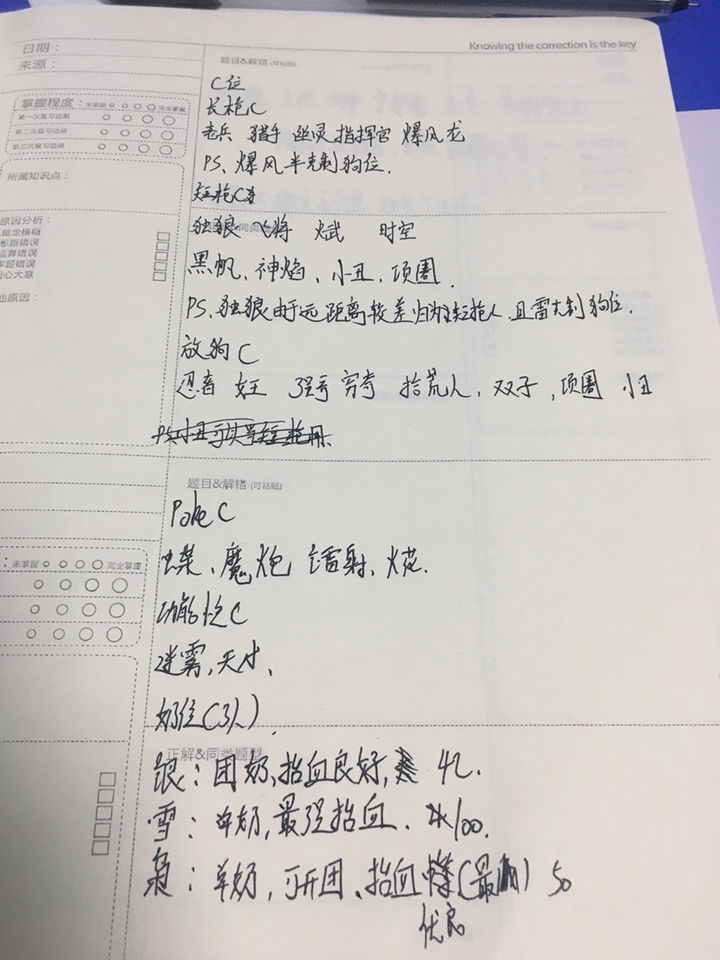 Knowing the correction is the key
日期：
来源：
题目&解错 (可粘贴)
C位
长枪C
掌握程度：未掌握 完全掌握
第一次复习结果
第二次复习结果
第三次复习结果
老兵 猎手 幽灵 指挥官 爆风龙
PS、爆风半克制狗位.
所属知识点：
短枪C
原因分析：
概念模糊
思路错误
运算错误
审题错误
粗心大意
独狼 飞将 斌 时空
黑帆、神焰、小丑、项圈.
PS、独狼由于远距离较差归为短抢人.且需大制狗位.
他原因：
放狗C
忍者 女王 强哥 穷奇 拾荒人、双子,项圈 小丑
题目&解错 (可粘贴)
Poke C
未掌握 完全掌握
蝶、魔炮 镭射、烟花.
功能性C
迷雾,天才、
奶位(3人).
正解&同类题型
银：团奶,抬血良好, 42.
雪：单奶,最强抬血. 100.
枭：单奶,可开团、抬血 50
优良